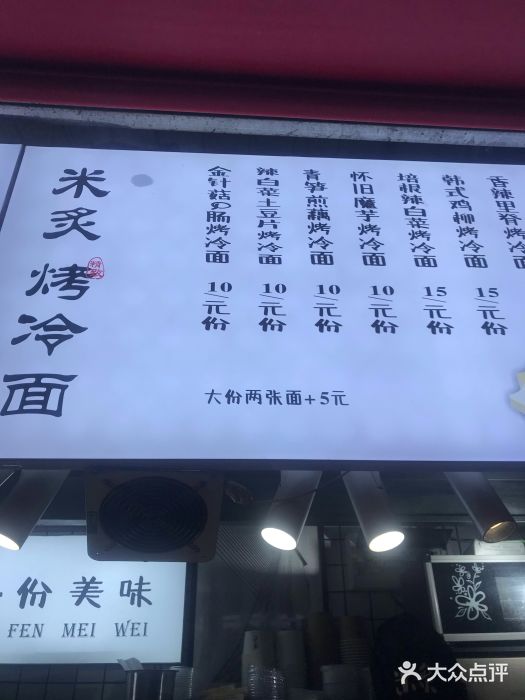 米炙
烤冷面
精致
金针菇の肠烤冷面 10/元份
辣白菜土豆片烤冷面 10/元份
青笋煎藕烤冷面 10/元份
怀旧魔芋烤冷面 10/元份
培根辣白菜烤冷面 15/元份
韩式鸡柳烤冷面 15/元份
香辣里脊烤冷面 15/元份
大份两张面+5元
份美味
FEN MEI WEI
大众点评